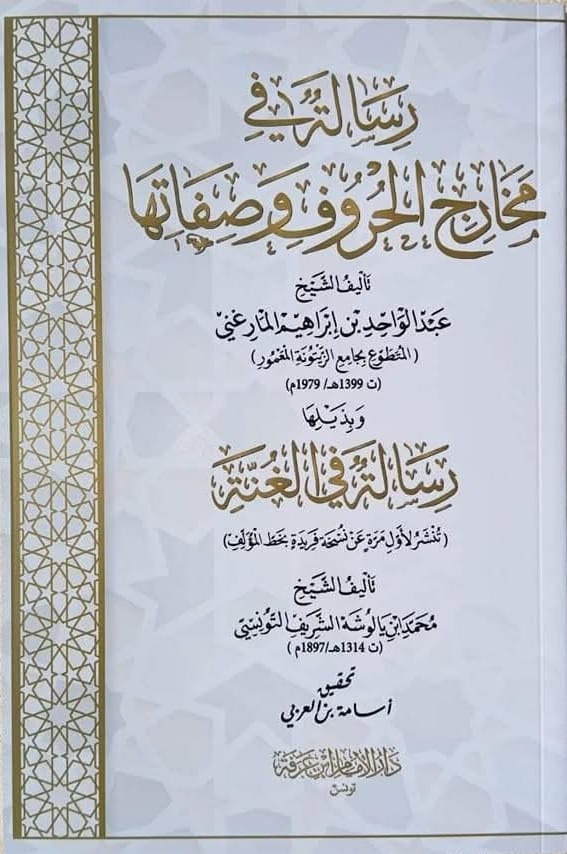 رِسَالَةٌ فِي
مَخَارِجِ الْحُرُوفِ وَصِفَاتِهَا
تَأْلِيفُ الشَّيْخِ
عَبْدِ الْوَاحِدِ بْنِ إِبْرَاهِيمَ الْمَارِغْنِيِّ
(الْمُتَطَوِّعِ بِجَامِعِ الزَّيْتُونَةِ الْمَعْمُورِ)
(ت 1399هـ/ 1979م)
وَبِذَيْلِهَا
رِسَالَةٌ فِي الْغُنَّةِ
(تُنْشَرُ لِأَوَّلِ مَرَّةٍ عَنْ نُسْخَةٍ فَرِيدَةٍ بِخَطِّ الْمُؤَلِّفِ)
تَأْلِيفُ الشَّيْخِ
مُحَمَّدِ ابْنِ يَالُوشَةَ الشَّرِيفِ التُّونِسِيِّ
(ت 1314هـ/1897م)
تحقيق
أسامة بن العربي
دار الإمام ابن عرفة
تونس